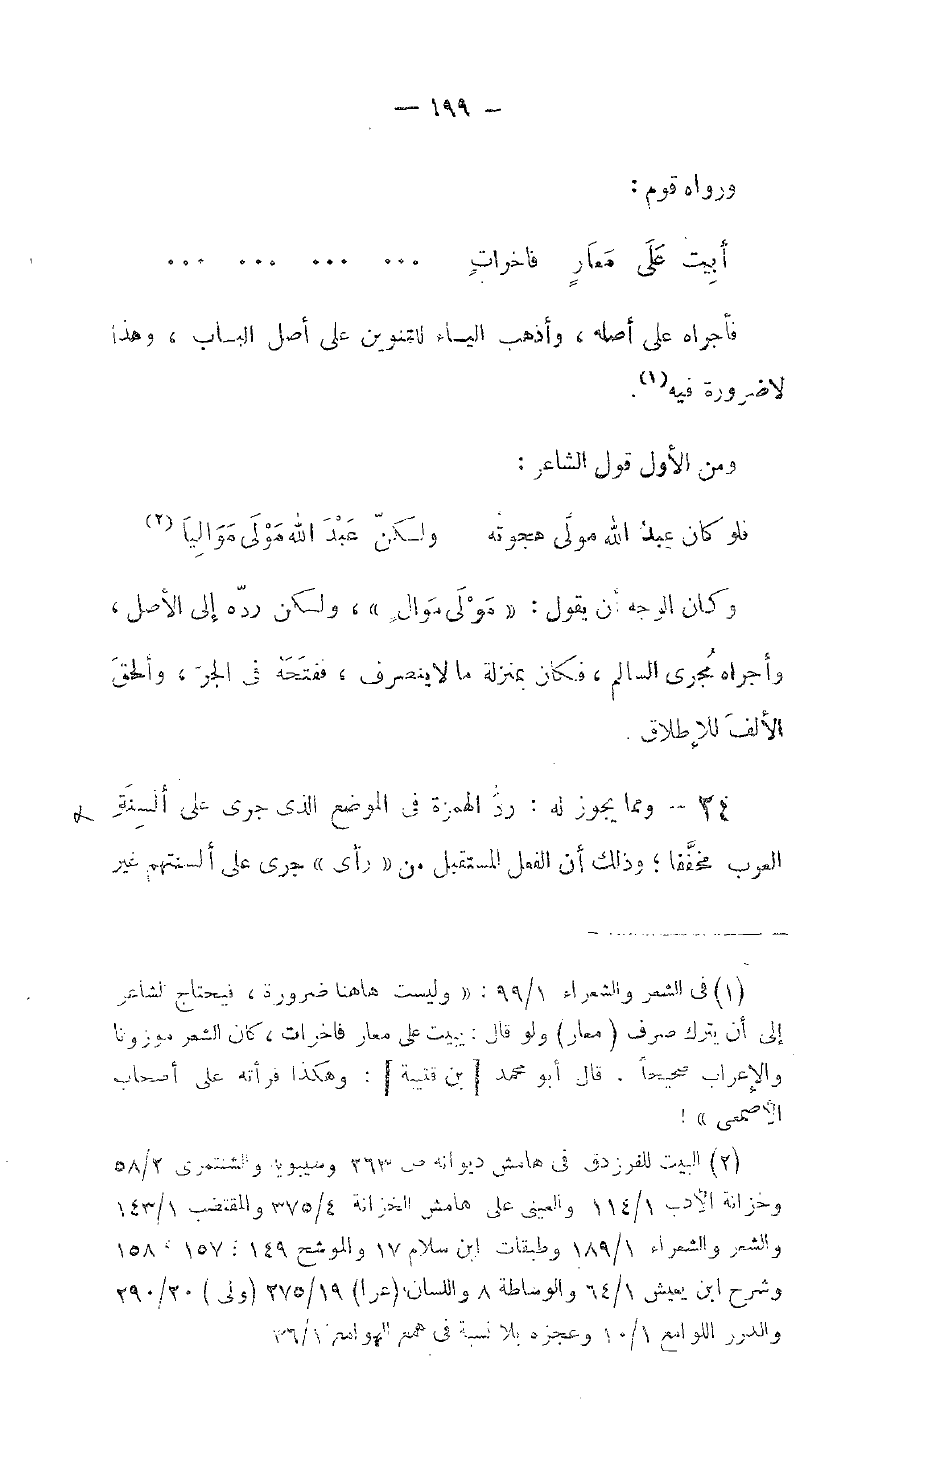 — ١٩٩ —
ورواه قوم :
أَبِيت عَلَى مَعَارٍ فاخراتٍ ... ... ... ...
فأجراه على أصله ، وأذهب اليـاء للتنوين على أصل البـاب ، وهذا
لاضرورة فيه(١).
ومن الأول قول الشاعر :
فلو كان عبدُ الله مولًى هجوتُه ولـكنّ عَبْدَ الله مَوْلَى مَوَالِيَا (٢)
وكان الوجه أن يقول : « مَوْلَى مَوالٍ » ، ولـكن ردّه إلى الأصل ،
وأجراه مُجرى السالم ، فـكان بمنزلة ما لاينصرف ، ففتَحَهُ فى الجرّ ، وألحقَ
الألفَ للإطلاق .
٣٤ -- ومما يجوز له : ردُّ الهمزة فى الموضع الذى جرى على ألْسِنَةِ
العرب مخفَّفا ؛ وذلك أن الفعل المستقبل من « رأى » جرى على ألسنتهم غير
(١) فى الشعر والشعراء ٩٩/١ : « وليست هاهنا ضرورة ، فيحتاج الشاعر
إلى أن يترك صرف ( معار ) ولو قال : يبيت على معار فاخرات ، كان الشعر موزونا
والإعراب صحيحاً . قال أبو محمد [ بن قتيبة ] : وهكذا قرأته على أصحاب
الأصمعى » !
(٢) البيت للفرزدق فى هامش ديوانه ص ٣٦٣ وسيبويه والشنتمرى ٥٨/٢
وخزانة الأدب ١١٤/١ والعينى على هامش الخزانة ٣٧٥/٤ والمقتضب ١٤٣/١
والشعر والشعراء ١٨٩/١ وطبقات ابن سلام ١٧ والموشح ١٤٩ ؛ ١٥٧ ؛ ١٥٨
وشرح ابن يعيش ٦٤/١ والوساطة ٨ واللسان (عرا) ٢٧٥/١٩ (ولى) ٢٩٠/٢٠
والدرر اللوامع ١٠/١ وعجزه بلا نسبة فى همع الهوامع ٣٦/١